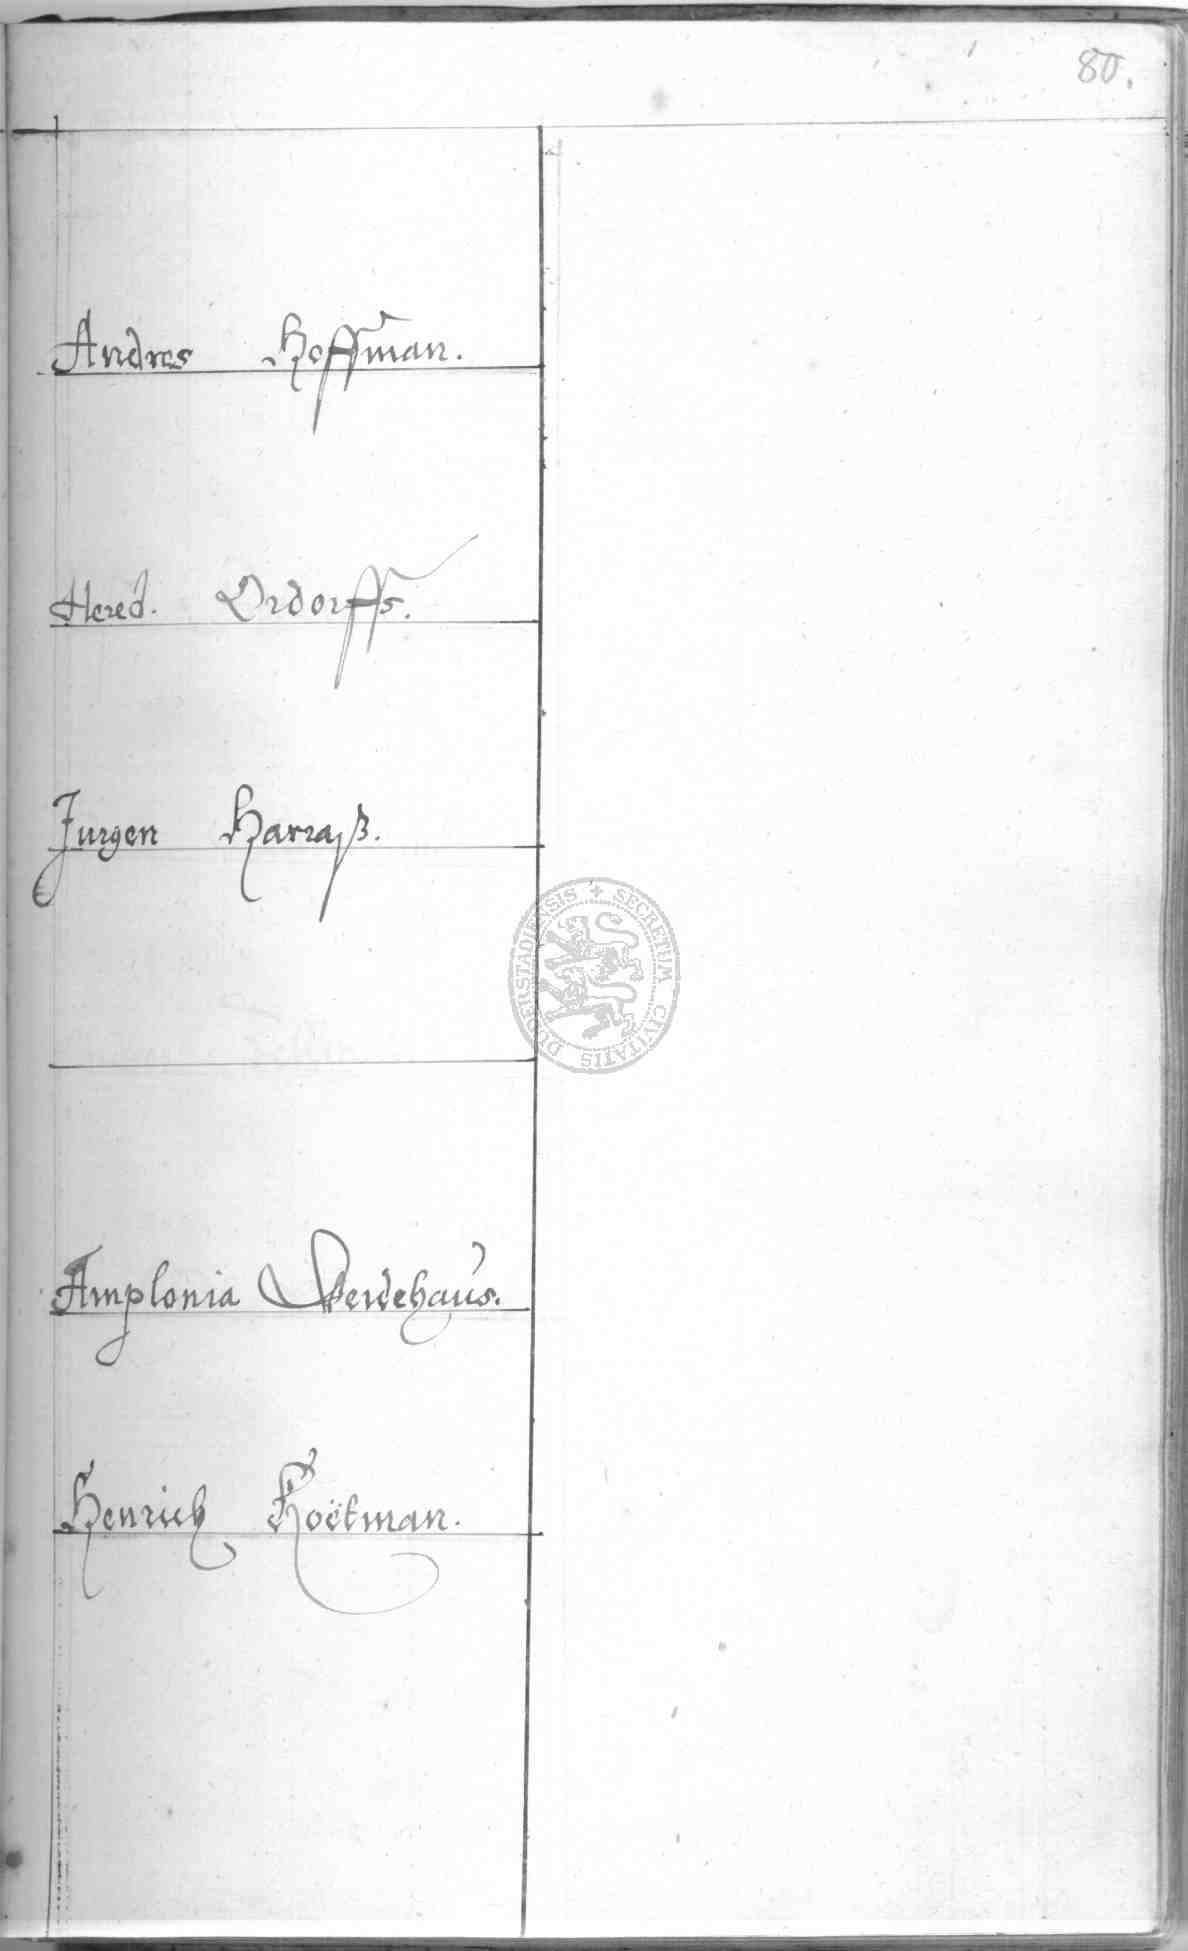 80.
Andres Hoffman.
Hered. Ordorffs.
Jurgen Harraß.
SECRETUM CIVITATIS DUDERSTADIENSIS
Amplonia Werdehaus.
Henrich Koëtman.